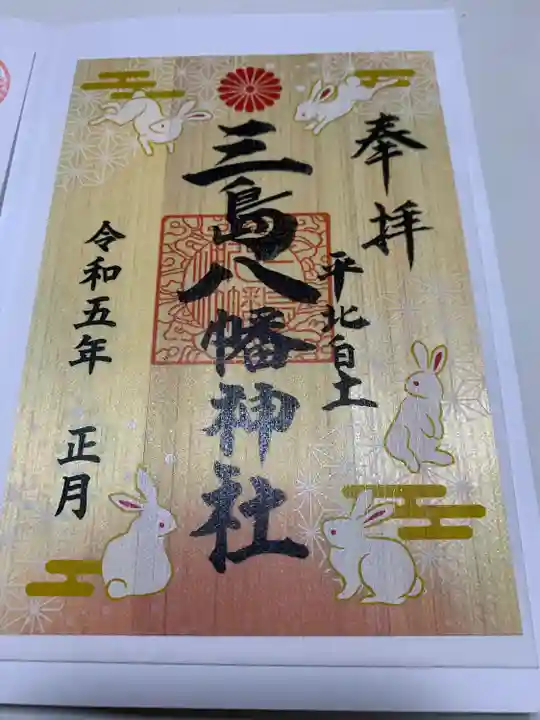 奉拝
平北自土
三島八幡神社
令和五年 正月